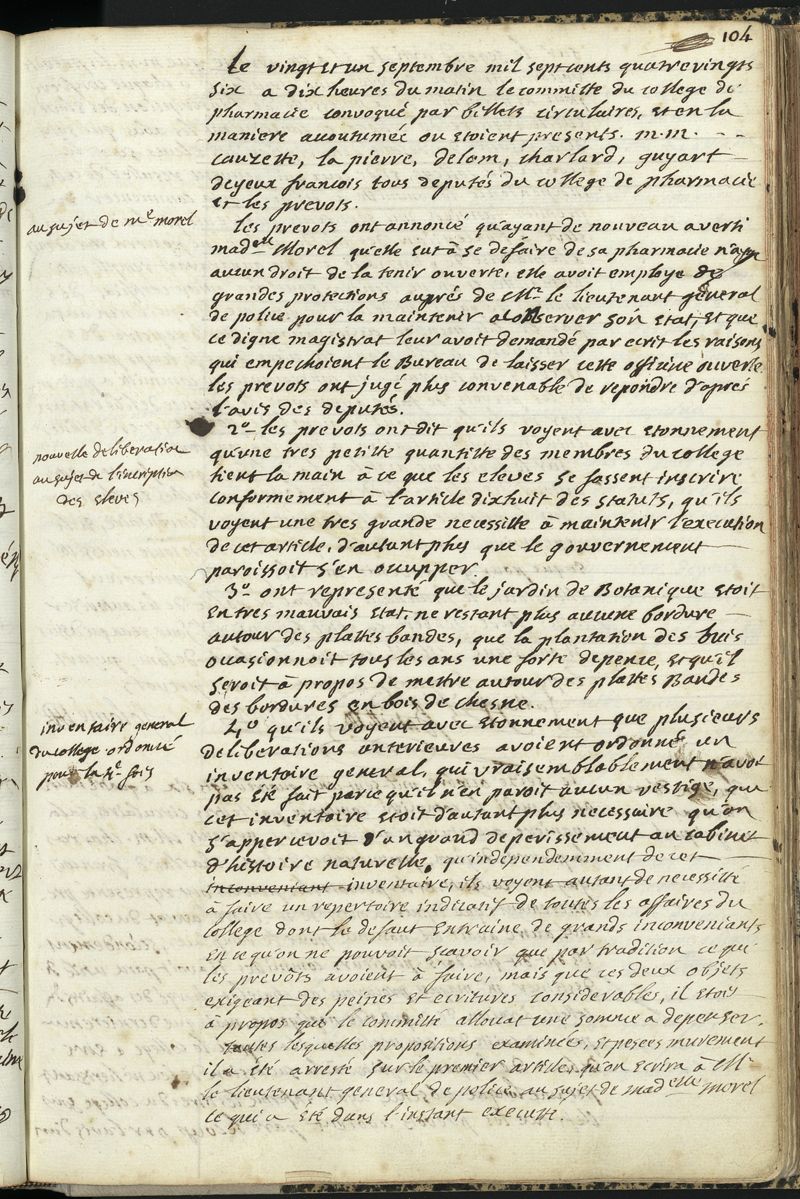 104
Le vingt et un septembre mil sept cents quatre vingts
six a dix heures du matin le committe du college de
pharmacie convoqué par billets circulaires, et en la
maniere accoutumée ou etoient presents. m.m. - - -
cauzette, la pierre, delom, charlard, guyart
deyeux francois tous deputés du college de pharmacie
et les prevots.
au sujet de me morel
les prevots ont annoncé qu'ayant de nouveau averti
madelle Morel qu'elle eut à se defaire de sa pharmacie n'ayant
aucun droit de la tenir ouverte, elle avoit employé de
grandes protections auprés de Mr le lieutenant general
de police pour la maintenir a conserver son etat, et que
ce digne magistrat leur avoit demandé par ecrit les raisons
qui empechoient le Bureau de laisser cette officine ouverte
les prevots ont jugé plus convenable de repondre d'aprés
l'avis des deputés.
nouvelle deliberation
au sujet de l'inscription
des eleves
2o les prevots ont dit qu'ils voyent avec etonnement
qu'une tres petitte quantitte des membres du college
tient la main à ce que les eleves se fassent inscrire
conformement à l'article dixhuit des statuts, qu'ils
voyent une tres grande necessitte à maintenir l'execution
de cet article, d'autant plus que le gouvernement
paroissoit s'en occupper.
3o ont representé que le jardin de Botanique etoit
en tres mauvais etat, ne restant plus aucune bordure
autour des plattes bandes, que la plantation des buis
occasionnoit tous les ans une forte depence, et qu'il
seroit à propos de mettre autour des plattes Bandes
des bordures en bois de chesne.
inventaire general
du college ordonné
pour la 4e fois
4o qu'ils voyent avec etonnement que plusieurs
deliberations anterieures avoient ordonné un
inventaire general, qui vraisemblablement n'avoit
pas été fait parce qu'il n'en paroit aucun vestige, que
cet inventaire etoit d'autant plus necessaire qu'on
s'appercevoit d'un grand deperissement au cabinet
d'histoire naturelle, qu'independemment de cet
inconveniant inventaire, ils voyent autant de necessité
à faire un repertoire indicatif de toutes les affaires du
college dont le defaut entraine de grands inconveniants
en ce qu'on ne pouvoit scavoir que par tradition ce que
les prevôts avoient à faire, mais que ces deux objets
exigeant des peines et ecritures considerables, il etoit
à propos que le committé allouat une somme a depenser.
toutes lesquelles propositions examinées, et pesées murement
il a été arresté sur le premier article qu'on ecrira à Mr
le lieutenant general de police au sujet de madelle morel
ce qui a été dans l'instant executté.